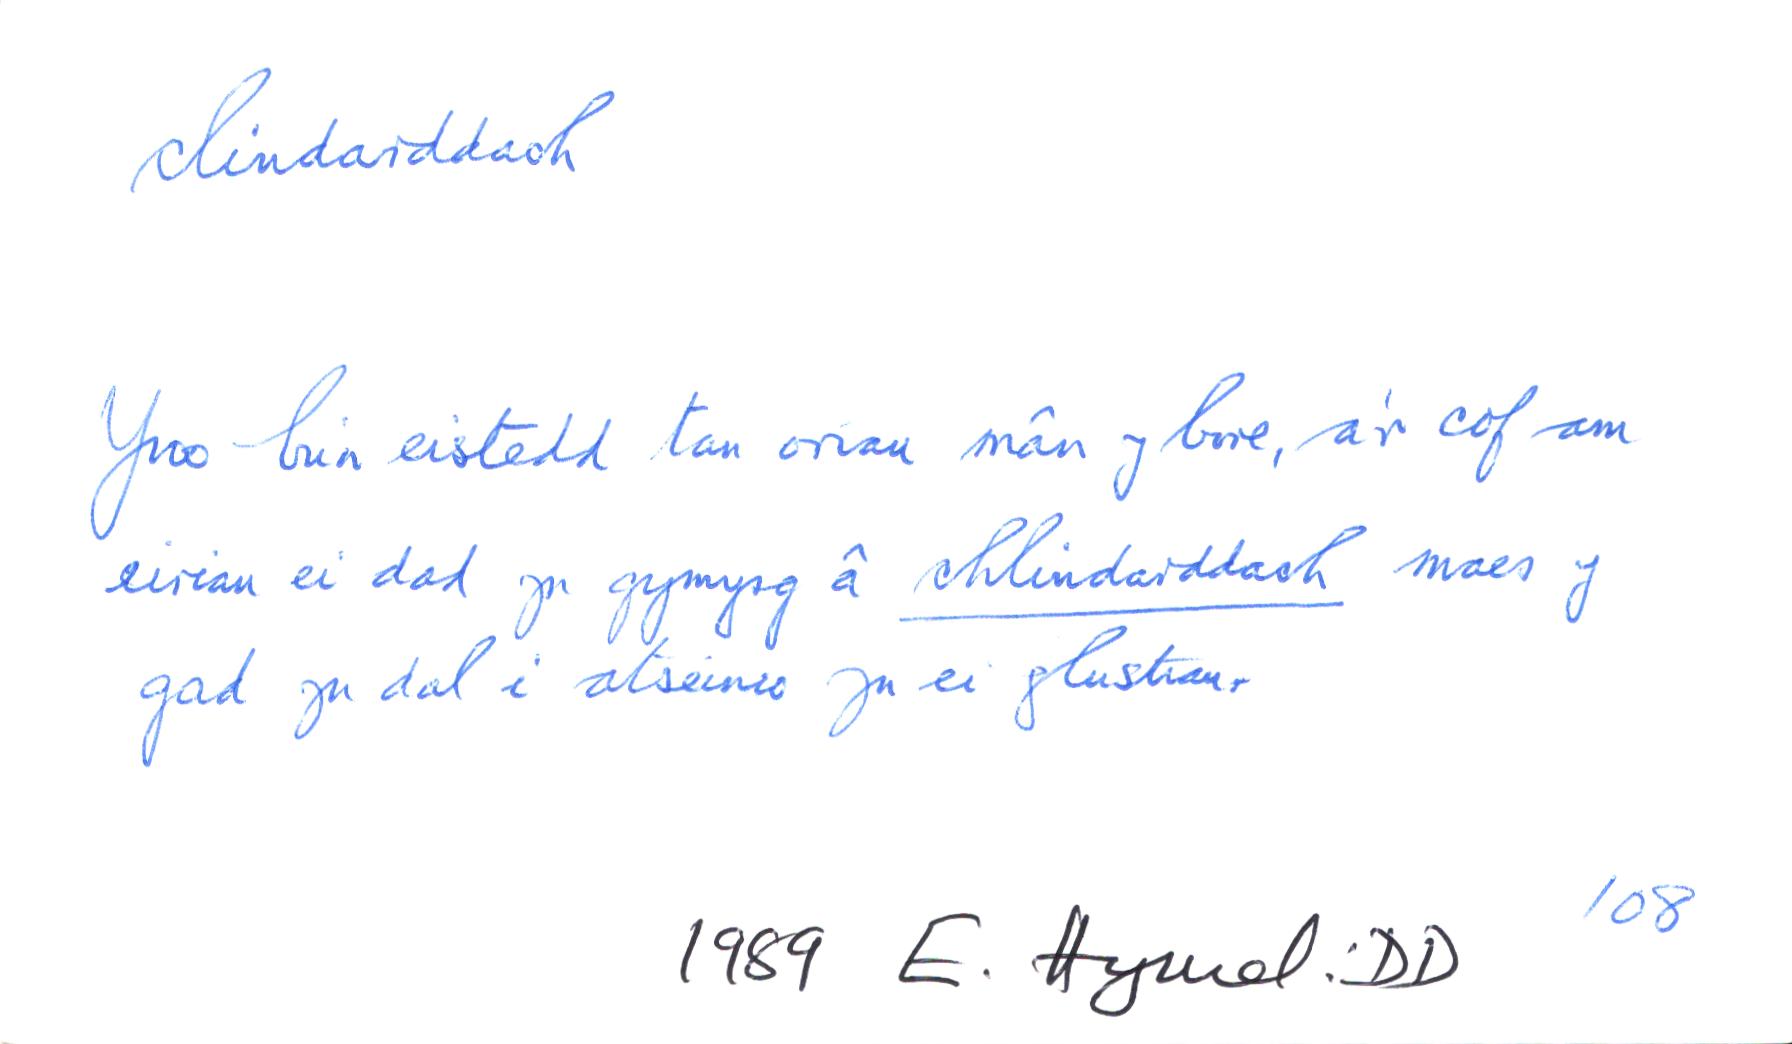 clindarddach
Yno bu'n eistedd tan oriau mân y bore, a'r cof am
eiriau ei dad yn gymysg â chlindarddach maes y
gad yn dal i atseinio yn ei glustiau.
108
1989 E. Hywel: DD